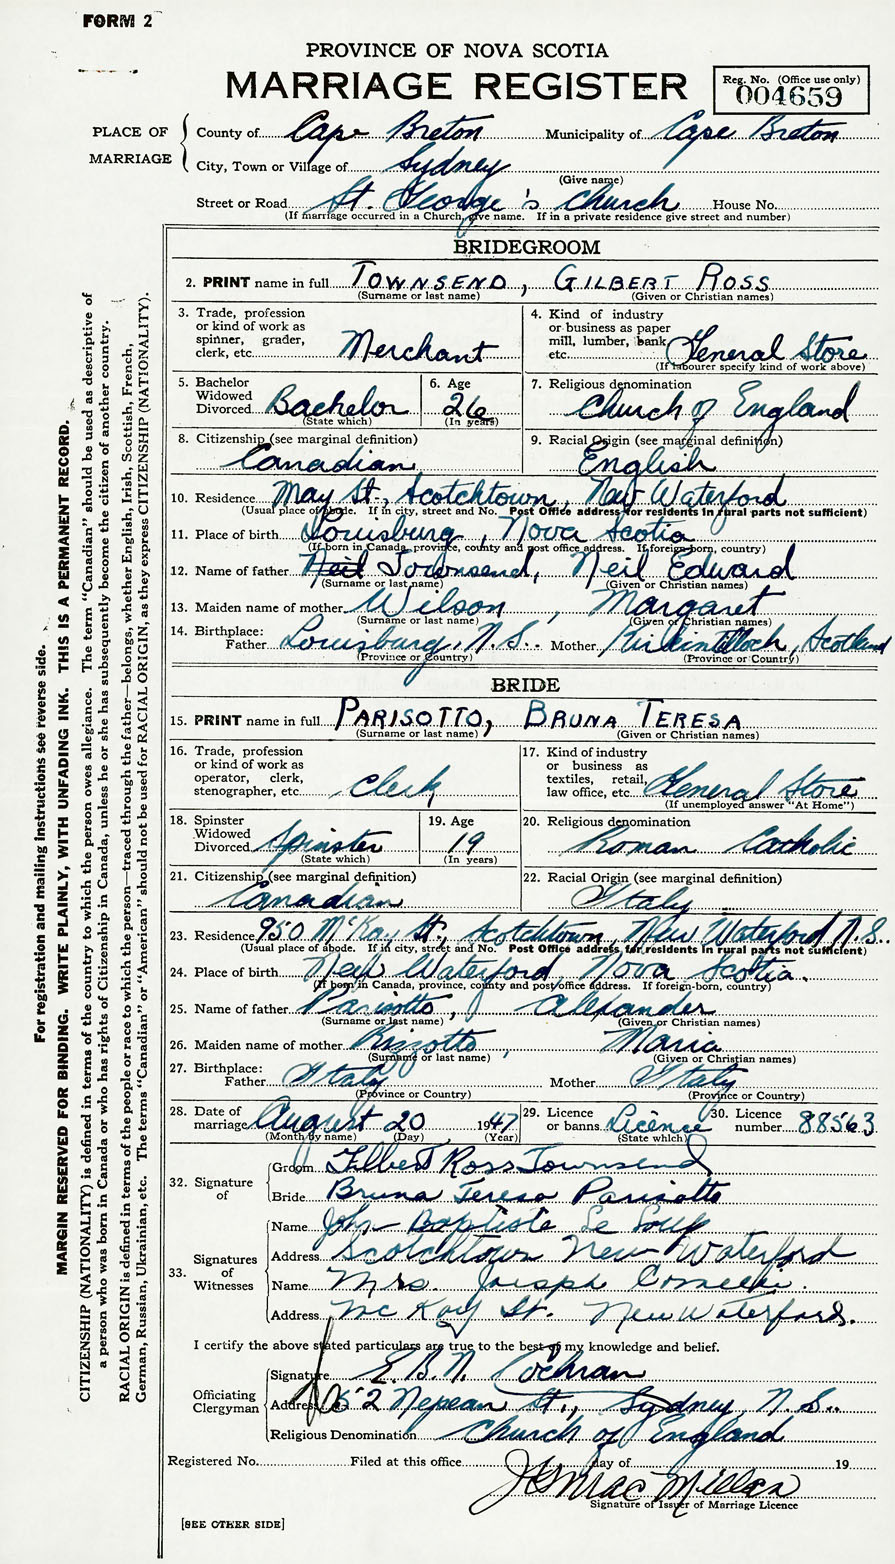 FORM 2
PROVINCE OF NOVA SCOTIA
MARRIAGE REGISTER
Reg. No. (Office use only)
004659
PLACE OF MARRIAGE
County of Cape Breton Municipality of Cape Breton
City, Town or Village of Sydney
(Give name)
Street or Road St. George's Church House No.
(If marriage occurred in a Church, give name. If in a private residence give street and number)
BRIDEGROOM
2. PRINT name in full TOWNSEND, GILBERT ROSS
(Surname or last name) (Given or Christian names)
3. Trade, profession or kind of work as spinner, grader, clerk, etc. Merchant
4. Kind of industry or business as paper mill, lumber, bank etc. General Store
(If labourer specify kind of work above)
5. Bachelor Widowed Divorced Bachelor
(State which)
6. Age 26
(In years)
7. Religious denomination
Church of England
8. Citizenship (see marginal definition)
Canadian
9. Racial Origin (see marginal definition)
English
10. Residence May St., Scotchtown, New Waterford
(Usual place of abode. If in city, street and No. Post Office address for residents in rural parts not sufficient)
11. Place of birth Louisburg, Nova Scotia
(If born in Canada, province, county and post office address. If foreign-born, country)
12. Name of father Neil Townsend, Neil Edward
(Surname or last name) (Given or Christian names)
13. Maiden name of mother Wilson, Margaret
(Surname or last name) (Given or Christian names)
14. Birthplace:
Father Louisburg, N.S. Mother Kirkintilloch, Scotland
(Province or Country) (Province or Country)
BRIDE
15. PRINT name in full PARISOTTO, BRUNA TERESA
(Surname or last name) (Given or Christian names)
16. Trade, profession or kind of work as operator, clerk, stenographer, etc. Clerk
17. Kind of industry or business as textiles, retail, law office, etc. General Store
(If unemployed answer "At Home")
18. Spinster Widowed Divorced Spinster
(State which)
19. Age 19
(In years)
20. Religious denomination
Roman Catholic
21. Citizenship (see marginal definition)
Canadian
22. Racial Origin (see marginal definition)
Italy
23. Residence 950 McKay St., Scotchtown, New Waterford N.S.
(Usual place of abode. If in city, street and No. Post Office address for residents in rural parts not sufficient)
24. Place of birth New Waterford, Nova Scotia.
(If born in Canada, province, county and post office address. If foreign-born, country)
25. Name of father Parisotto, Alexander
(Surname or last name) (Given or Christian names)
26. Maiden name of mother Maria
(Surname or last name) (Given or Christian names)
27. Birthplace:
Father Italy Mother Italy
(Province or Country) (Province or Country)
28. Date of marriage August 20 1947
(Month by name) (Day) (Year)
29. Licence or banns Licence
(State which)
30. Licence number 88563
32. Signature of
Groom Gilbert Ross Townsend
Bride Bruna Teresa Parisotto
33. Signatures of Witnesses
Name John Baptiste Le
Address Scotchtown New Waterford
Name Mrs. Joseph
Address McKay St. New Waterford.
I certify the above stated particulars are true to the best of my knowledge and belief.
Officiating Clergyman
Signature E. B. N. Cochran
Address 52 Nepean St., Sydney, N.S.
Religious Denomination Church of England
Registered No. Filed at this office day of 19
MacMillan
Signature of Issuer of Marriage Licence
[SEE OTHER SIDE]
For registration and mailing instructions see reverse side.
MARGIN RESERVED FOR BINDING. WRITE PLAINLY, WITH UNFADING INK. THIS IS A PERMANENT RECORD.
CITIZENSHIP (NATIONALITY) is defined in terms of the country to which the person owes allegiance. The term "Canadian" should be used as descriptive of
a person who was born in Canada or who has rights of Citizenship in Canada, unless he or she has subsequently become the citizen of another country.
RACIAL ORIGIN is defined in terms of the people or race to which the person—traced through the father—belongs, whether English, Irish, Scottish, French,
German, Russian, Ukrainian, etc. The terms "Canadian" or "American" should not be used for RACIAL ORIGIN, as they express CITIZENSHIP (NATIONALITY).